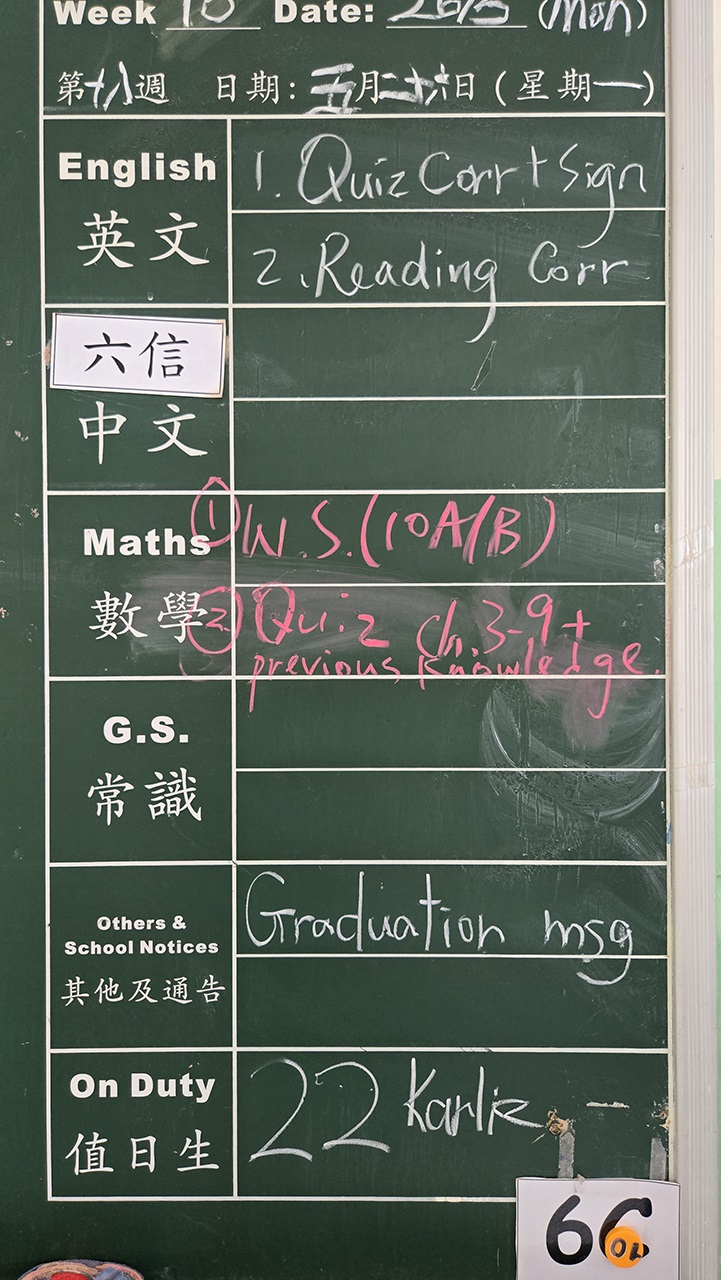 Week 18 Date: 26/5 (Mon)
第十八週 日期: 五月二十六日 (星期一)
English
英文
1. Quiz Corr + Sign
2. Reading Corr
六信
中文
Maths
數學
① W.S. (10A/B)
② Quiz ch.3-9 +
previous knowledge.
G.S.
常識
Others &
School Notices
其他及通告
Graduation msg
On Duty
值日生
22
6